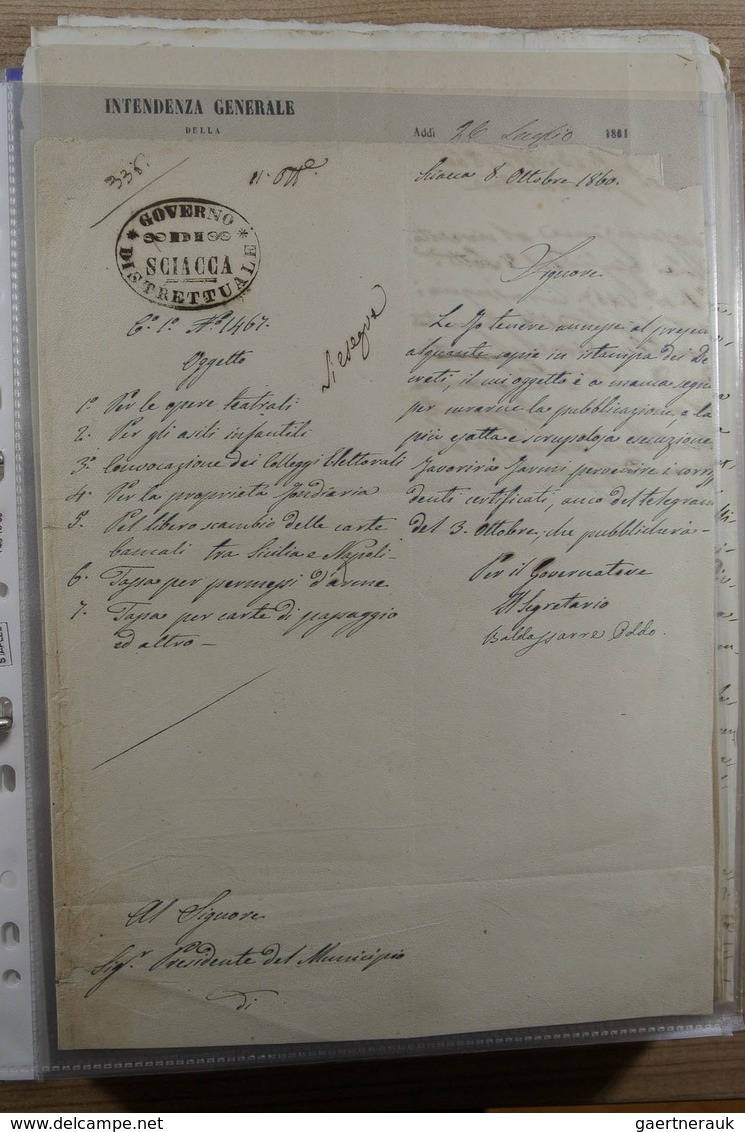 INTENDENZA GENERALE
DELLA
Addi 26 Luglio 1861
338.
11. Ott.e
Sciacca 8. Ottobre 1860.
GOVERNO
DI
SCIACCA
DISTRETTUALE
C.o 1.o N.o 1467.
Oggetto
Si esegua
1.o Per le opere teatrali
2. Per gli asili infantili
3.o Convocazione dei Colleggi Elettorali
4.o Per la proprietà fondiaria
5. Pel libero scambio delle carte
bancali tra Sicilia e Napoli-
6. Tassa per permessi d'arme
7. Tassa per carte di passaggio
ed altro-
Signore
Le fo tenere annesse al presen
alquante copie in istampa dei De
creti, il cui oggetto è a manca segna
per curarne la pubblicazione, e la
più esatta e scrupolosa esecuzione
Favorirà farmi pervenire i corris
denti certificati, anco del telegram
del 3. Ottobre, che pubblicherà-
Per il Governatore
Il Segretario
Baldassarre Oddo.
Al Signore
Sig.r Presidente del Municipio
di
STAPLES
gaertnerauk